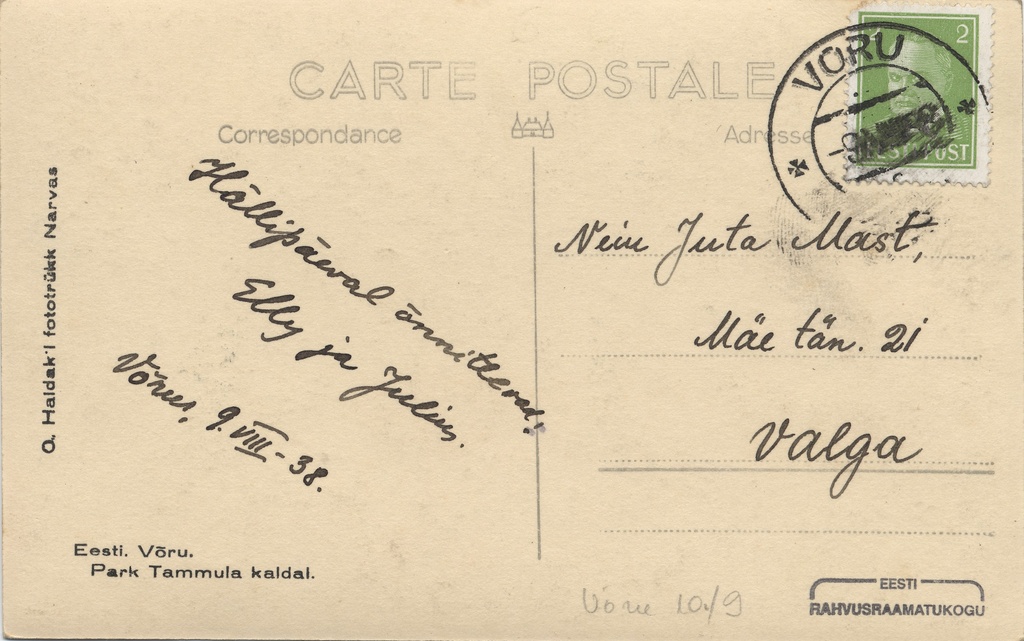 CARTE POSTALE
Correspondance
Adresse
VÕRU
2
EESTI POST
Hällipäeval õnnitlevad!
Elly ja Julius.
Võrus, 9. VIII - 38.
Neiu Juta Mast,
Mäe tän. 21
Valga
O. Haldak'l fototrükk Narvas
Eesti. Võru.
Park Tammula kaldal.
10/9
EESTI
RAHVUSRAAMATUKOGU